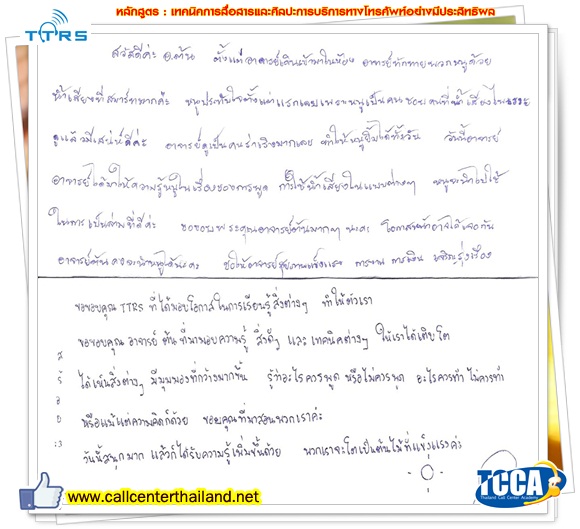 หลักสูตร : เทคนิคการสื่อสารและศิลปะการบริการทางโทรศัพท์อย่างมีประสิทธิผล
TTRS
สวัสดีค่ะ อ.ต้น ตั้งแต่อาจารย์เดินเข้ามาในห้อง อาจารย์ทักทายพวกหนูด้วย
น้ำเสียงที่สมาร์ทมากค่ะ หนูประทับใจตั้งแต่แรกเลย เพราะหนูเป็นคนชอบคนที่น้ำเสียง
ดูแล้วมีเสน่ห์ดีค่ะ อาจารย์ดูเป็นคนร่าเริงมากเลย ทำให้หนูยิ้มได้ทั้งวัน วันนี้อาจารย์
อาจารย์ได้มาให้ความรู้หนูในเรื่องของการพูด การใช้น้ำเสียงในแบบต่างๆ หนูจะนำไปใช้
ในการเป็นล่ามที่ดีค่ะ ขอขอบพระคุณอาจารย์ต้นมากๆ นะคะ โอกาสหน้าอาจได้เจอกัน
อาจารย์ต้นคงจะจำหนูได้นะคะ ขอให้อาจารย์สุขภาพแข็งแรง การงาน การเงิน เจริญรุ่งเรือง
ขอขอบคุณ TTRS ที่ได้มอบโอกาสในการเรียนรู้สิ่งต่างๆ ทำให้ตัวเรา
ขอขอบคุณ อาจารย์ ต้น ที่มามอบความรู้ สิ่งดีๆ และ เทคนิคต่างๆ ให้เราได้เติบโต
ได้เห็นสิ่งต่างๆ มีมุมมองที่กว้างมากขึ้น รู้ว่าอะไรควรพูด หรือไม่ควรพูด อะไรควรทำ ไม่ควรทำ
หรือแม้แต่ความคิดก็ด้วย ขอบคุณที่มาสอนพวกเราค่ะ
วันนี้สนุกมาก แล้วก็ได้รับความรู้เพิ่มขึ้นด้วย พวกเราจะโตเป็นต้นไม้ที่แข็งแรงค่ะ
www.callcenterthailand.net
TCCA
Thailand Call Center Academy